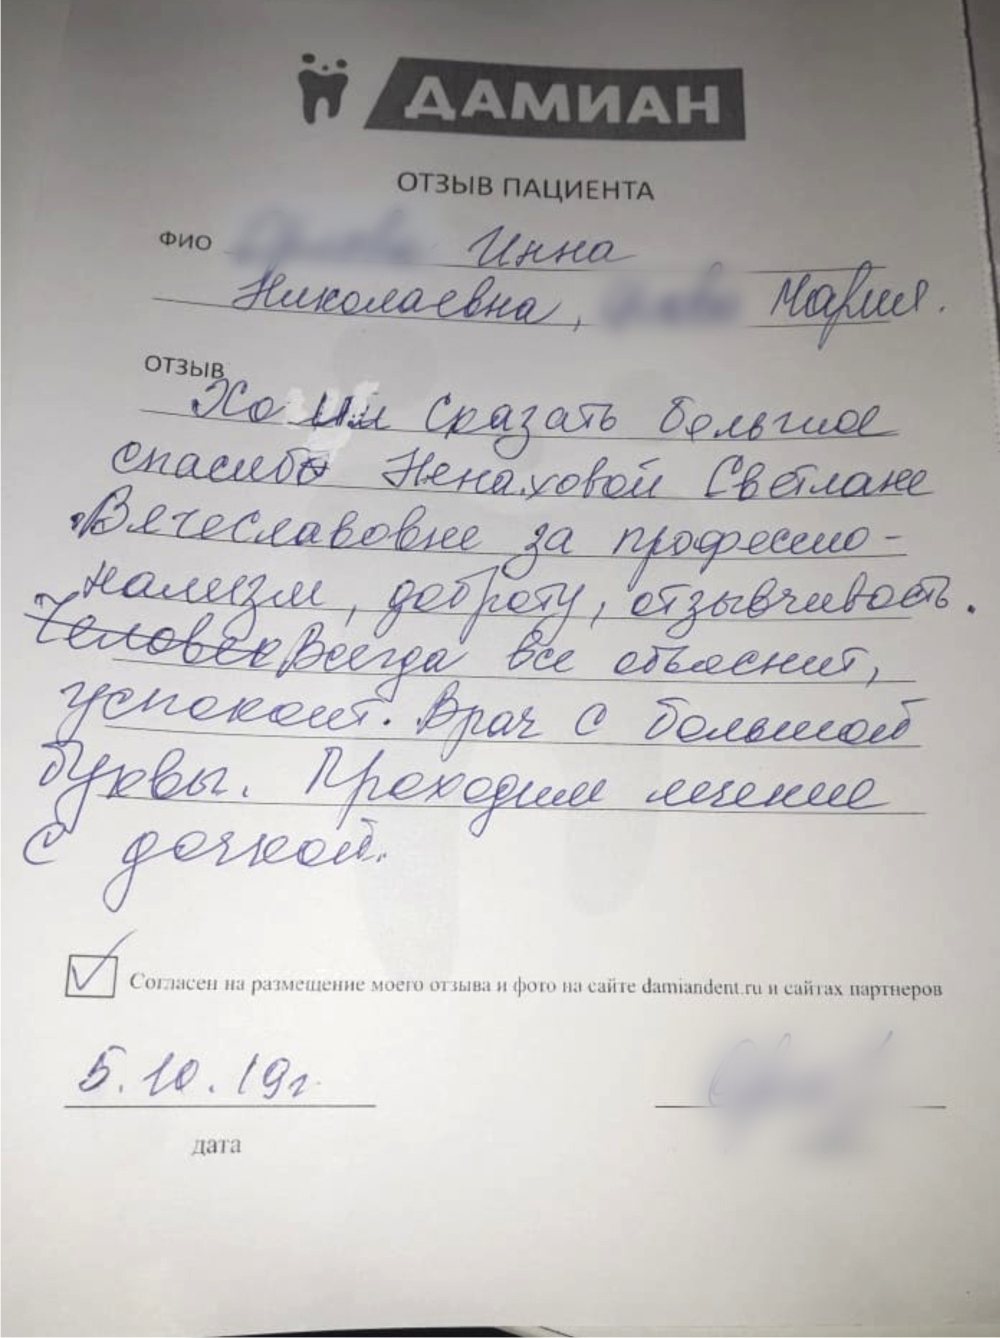 ДАМИАН
ОТЗЫВ ПАЦИЕНТА
ФИО Инна
Николаевна, Мария.
ОТЗЫВ
Хотим сказать большое
спасибо Ненаховой Светлане
Вячеславовне за профессио-
нализм, доброту, отзывчивость.
Человек Всегда все объяснит,
успокоит. Врач с большой
буквы. Проходим лечение
с дочкой.
Согласен на размещение моего отзыва и фото на сайте damiandent.ru и сайтах партнеров
5.10.19г
дата